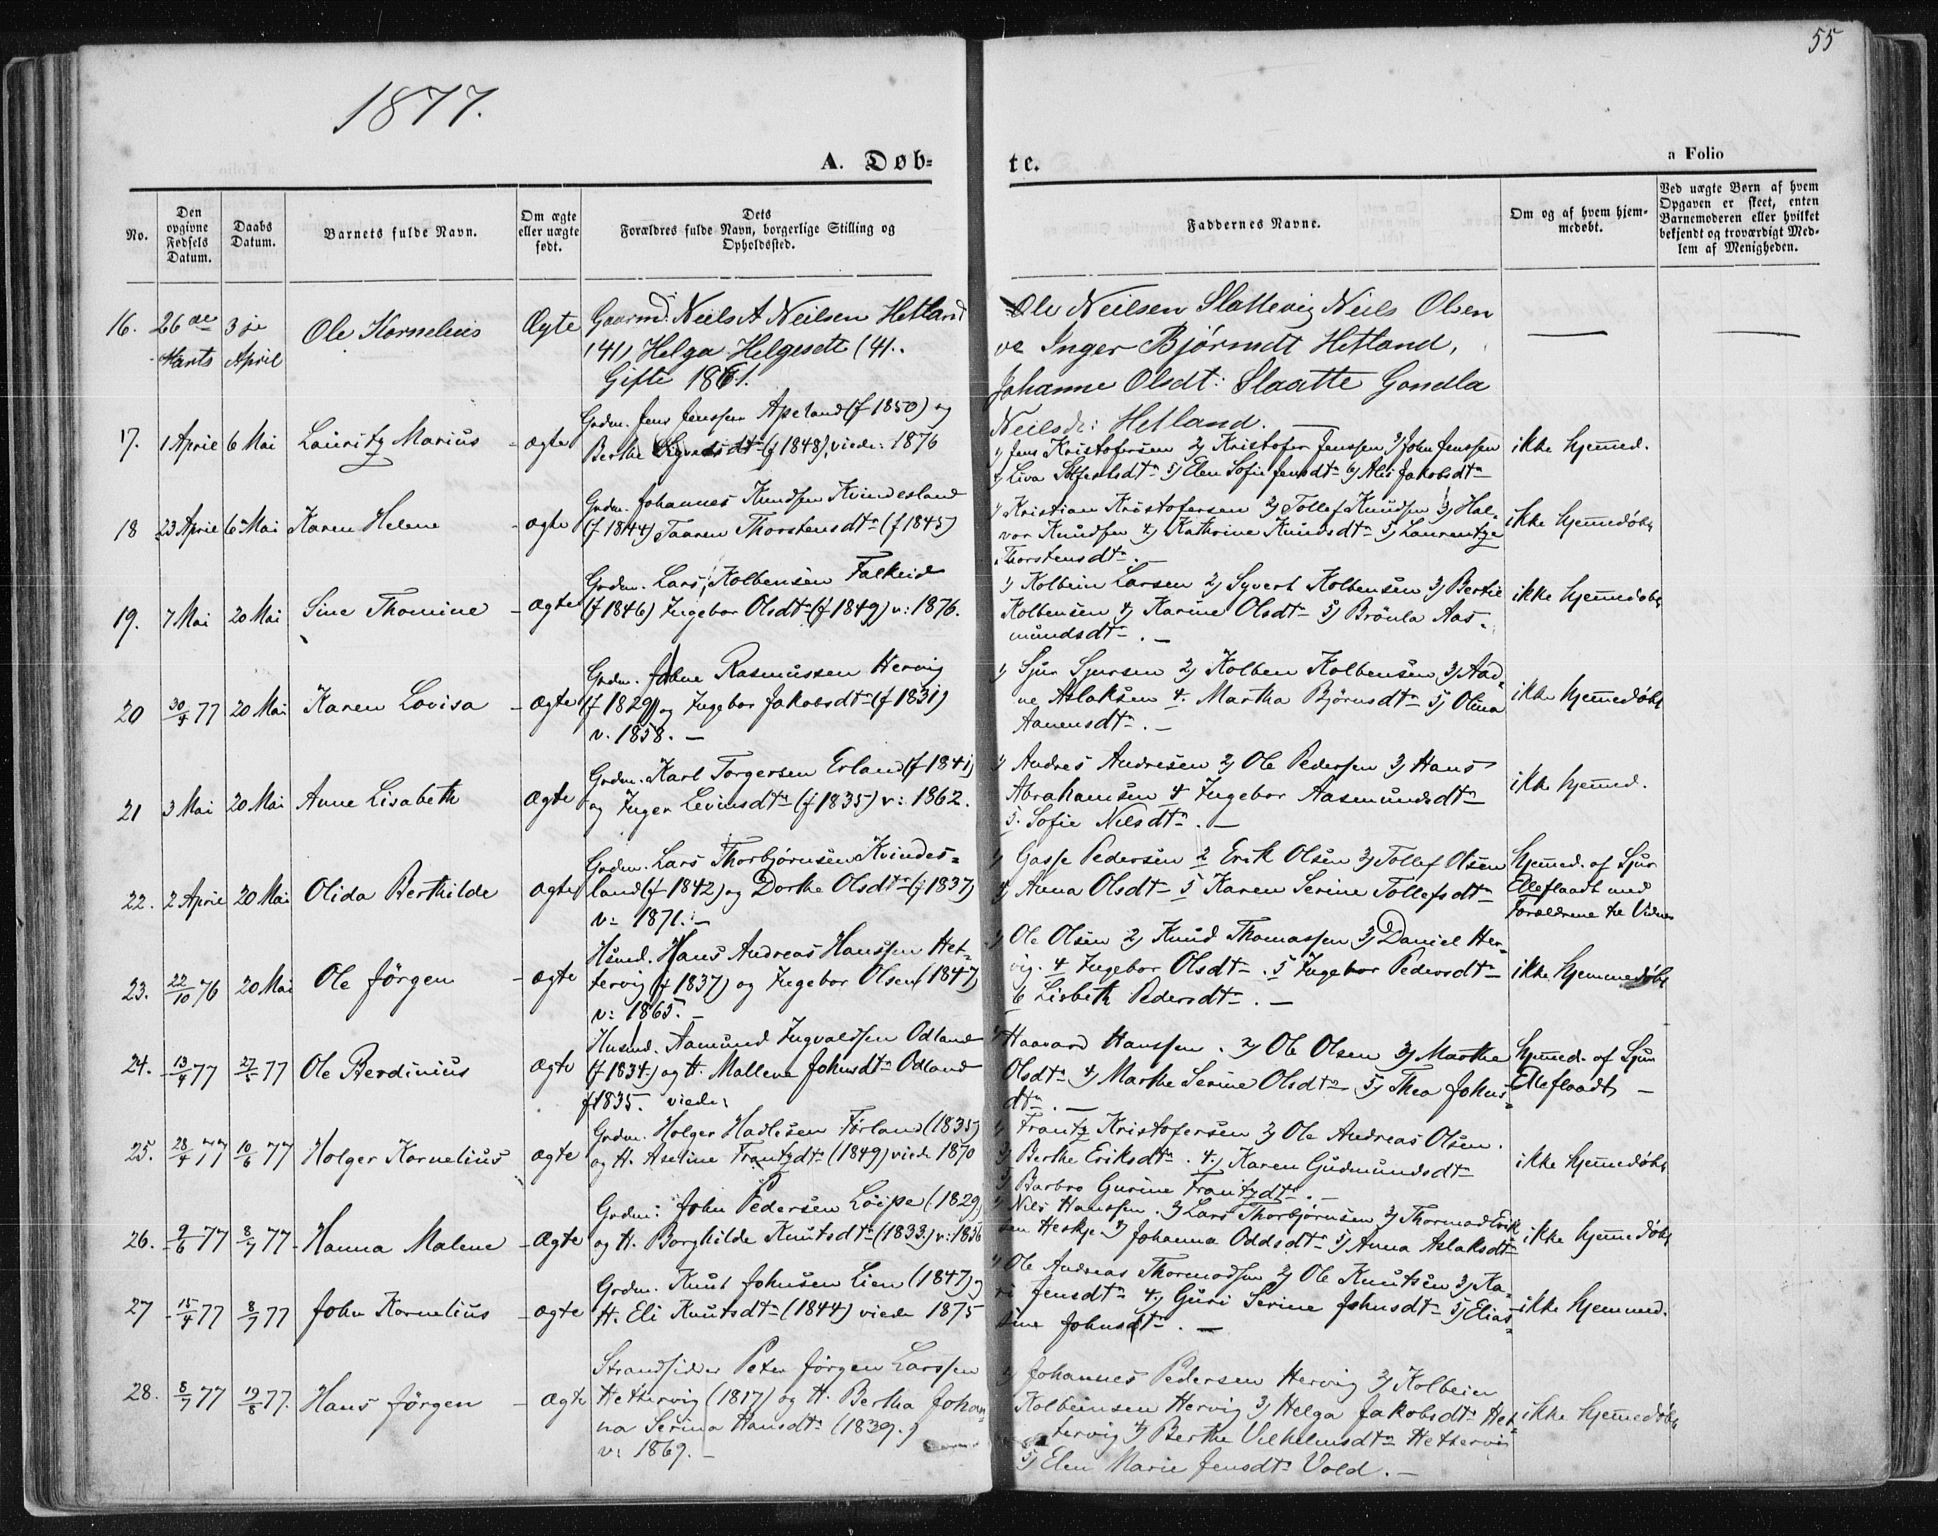 55
1877.
A. Døb-
te.
a Folio
No.
Den opgivne Fødsels Datum.
Daabs Datum.
Barnets fulde Navn.
Om ægte eller uægte født.
Dets Forældres fulde Navn, borgerlige Stilling og Opholdssted.
Faddernes Navne.
Om og af hvem hjemmedøbt.
Ved uægte Børn af hvem Opgaven er skeet, enten Barnemoderen eller hvilket bekjendt og troværdigt Medlem af Menigheden.
16. 26de Marts 3je April Ole Kornelius Ægte
Gaarmd: Neils A Neilsen Hetland
(41) Helga Helgesett (41.
Gifte 1861.
Ole Neilsen Slattevig Neils Olsen
Inger Bjørnsdt Hetland,
Johanne Olsdt: Slaatte Gondla
Neilsdt: Hetland. —
17. 1 April 6 Mai Lauritz Marius - ægte
Grdm. Jens Jenssen Apeland (f 1850) og
Berthe Sigvartsdtr (f 1848), viede: 1876
1) Jens Kristofersen 2) Kristofer Jenssen 3) John Jenssen
4) Liva dtr 5) Elen Sofie Jensdtr 6) Alis Jakobsdtr
ikke hjemmed.
18 23 April 6 Mai Karen Helene - ægte
Grdm. Johannes Knudsen Kvindesland
(f 1844) Taaren Thorstensdtr (f 1845)
1) Kristian Kristofersen 2) Tollef Knudsen 3) Hal-
vor Knudsen 4) Kathrine Knudsdtr 5) Laurentze
Thorstensdtr. —
ikke hjemmedøbt
19. 7 Mai 20 Mai Sine Thomine - ægte
Grdm. Lars Kolbensen Falkeid
(f 1846) Ingebor Olsdtr (f 1849) v: 1876.
1) Kolbein Larsen 2) Syvert Kolbensen 3) Bertie
Kolbensen 4) Karine Olsdtr 5) Brönla Aas-
mundsdtr. —
ikke hjemmedøbt
20 30/4 77 20 Mai Karen Lovisa - ægte
Grdm. Rasmussen Hervig
(f 1829) og Ingebor Jakobsdtr (f 1831)
v. 1858. —
1) Sjur Sjursen 2) Kolben Kolbensen 3) Aad-
ne Aslaksen 4. Martha Björnsdtr 5) Olina
Aanensdtr. —
ikke hjemmedøbt
21 3 Mai 20 Mai Anne Lisabeth ægte
Grdm. Karl Torgersen Erland (f 1841)
og Inger Levinsdtr (f 1835) v: 1862.
1) Andres Andresen 2) Ole Pedersen 3) Hans
Abrahamsen 4 Ingebor Aasmundsdtr
5. Sofie Nilsdtr. —
ikke hjemmed.
22. 2 April 20 Mai Olida Berthilde ægte
Grdm. Lars Thorbjørnsen Kvindes-
land (f 1842) og Dorthe Olsdtr (f 1837)
v: 1871. —
1) Gasse Pedersen 2 Erik Olsen 3) Tollef Olsen
4) Anna Olsdtr 5 Karen Serine Tollefsdtr
hjemmed. af Sjur
Elleflaadt med
Forældrene til Vidne
23. 22/10 76 20 Mai Ole Jörgen - ægte
Husmd. Hans Andreas Hanssen Het-
tervig (f 1837) og Ingebor Olsen (1847)
v: 1865. —
1) Ole Olsen 2) Knud Thomassen 3) Daniel Her-
vig. 4 Ingebor Olsdtr. 5 Ingebor Pedersdtr
6 Lisbeth Pedersdtr. —
ikke hjemmedøbt
24. 13/4 77 27/5 77 Ole Berdinius ægte
Husmd. Aamund Ingvaldsen Odland
(f 1834) og H. Mallene Johnsdtr Odland
f 1835. viede:
1) Haavard Hanssen. 2) Ole Olsen 3) Marthe
Olsdtr 4) Marthe Serine Olsdtr 5) Thea Johns-
dtr. —
hjemmed. af Sjur
Elleflaadt —
25. 28/4 77 10/6 77 Holger Kornelius ægte
Grdm. Holger Hadlesen Førland (1835)
og H. Aseline Frantzdtr (1849) viede 1870
1) Frantz Kristofersen 2) Ole Andreas Olsen.
3) Berthe Eriksdtr. 4) Karen Gudmundsdtr
5) Barbro Gurine Frantzdtr. —
ikke hjemmedøbt
26. 9/6 77 8/7 77 Hanna Malene - Ægte
Grdm: John Pedersen Löipe (1829)
og H. Borghilde Knutsdtr (1833.) v: 1856
1) Nils Hanssen. 2) Lars Thorbjørnsen 3) Thormod Erik-
sen Heskje 3) Johanna Oddsdtr 5) Anna Aslaksdtr
ikke hjemmedøbt
27 15/4 77 8/7 77 John Kornelius - ægte
Grdm. Knut Johnsen Lien (1847) og
H. Eli Knutsdtr (1844) viede 1875
1) Ole Andreas Thormodsen 2) Ole Knutsen 3) Ka-
ri Jensdtr 4) Guri Serine Johnsdtr 5) Elias-
sine Johnsdtr. —
ikke hjemmed.
28. 8/7 77 19/8 77. Hans Jörgen - ægte
Strandsidder Peter Jörgen Larssen
Hettervig (1817) og H. Bertha Johan-
na Serina Hansdtr (1839.)
v: 1869. —
1) Johannes Pedersen Hervig 2) Kolbein
Kolbeinsen Hervig 3) Helga Jakobsdtr Het-
tervig 4) Berthe Vilhelmsdtr Hettervig
5) Elen Marie Jensdtr Vold. —
ikke hjemmedøbt